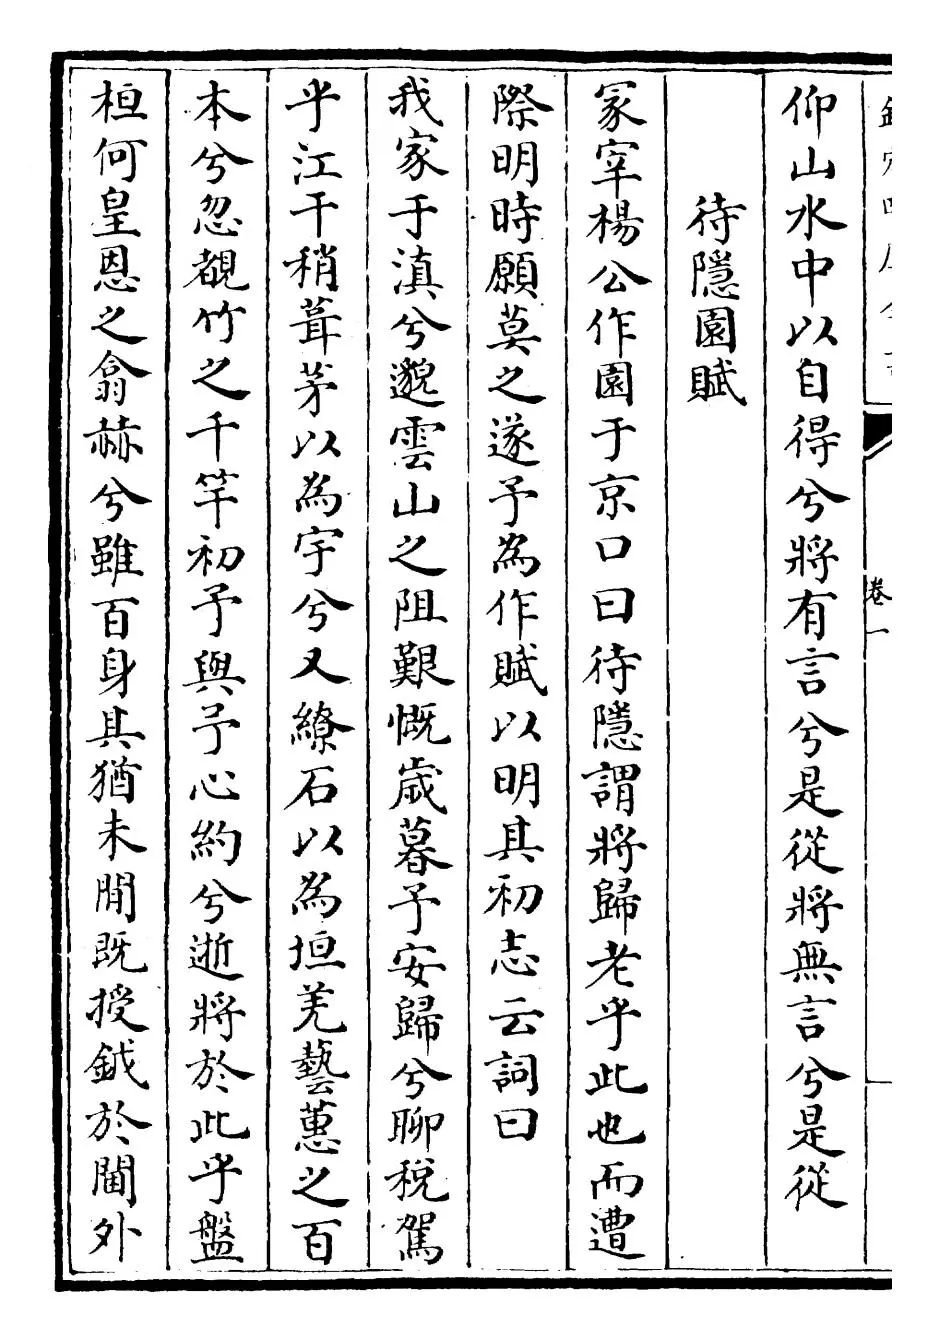 欽定四庫全書
卷一
仰山水中以自得兮將有言兮是從將無言兮是從
待隱園賦
冢宰楊公作園于京口曰待隱謂將歸老乎此也而遭
際明時願莫之遂予為作賦以明其初志云詞曰
我家于滇兮邈雲山之阻艱慨歳暮予安歸兮聊稅駕
乎江干稍葺茅以為宇兮又繚石以為垣羌藝蕙之百
本兮忽覩竹之千竿初予與予心約兮逝將於此乎盤
桓何皇恩之翕赫兮雖百身其猶未閒既授鉞於閫外